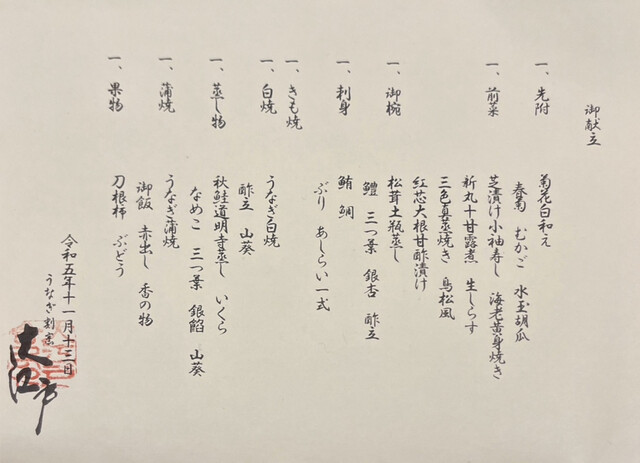 御献立
一、先附 菊花白和え
春菊 むかご 水玉胡瓜
一、前菜 芝漬け小袖寿し 海老黄身焼き
新丸十甘露煮 生しらす
三色真蒸焼き 鳥松風
紅芯大根甘酢漬け
一、御椀 松茸土瓶蒸し
鱧 三つ葉 銀杏 酢立
一、刺身 鮪 鯛
ぶり あしらい一式
一、きも焼
一、白焼 うなぎ白焼
酢立 山葵
一、蒸し物 秋鮭道明寺蒸し いくら
なめこ 三つ葉 銀餡 山葵
一、蒲焼 うなぎ蒲焼
御飯 赤出し 香の物
一、果物 刀根柿 ぶどう
令和五年十一月十三日
うなぎ割烹
大江戸